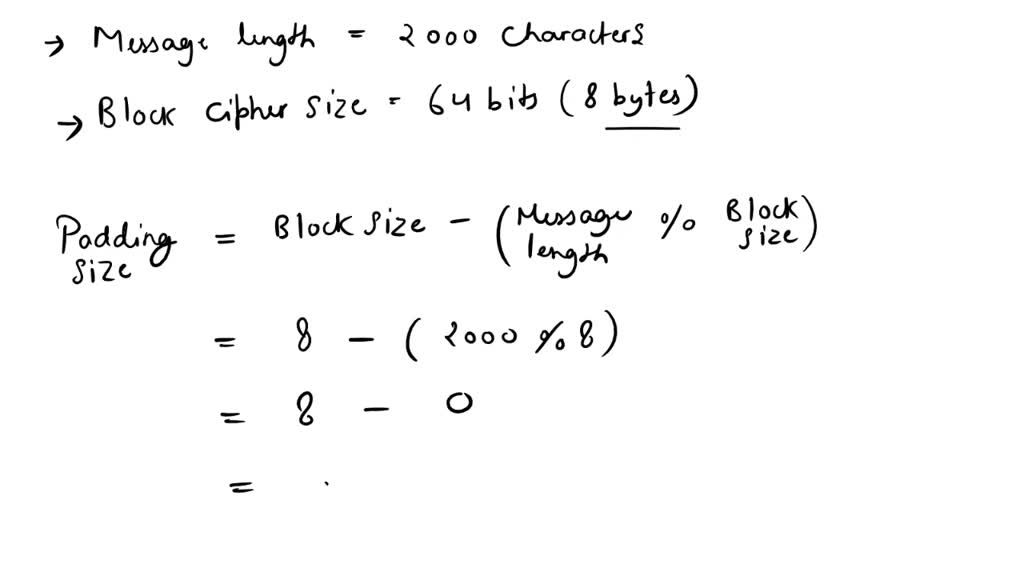 → Message length = 2000 characters
→ Block cipher size = 64 bits (8 bytes)
Padding size = Block size - (Message length % Block size)
= 8 - (2000 % 8)
= 8 - 0
=